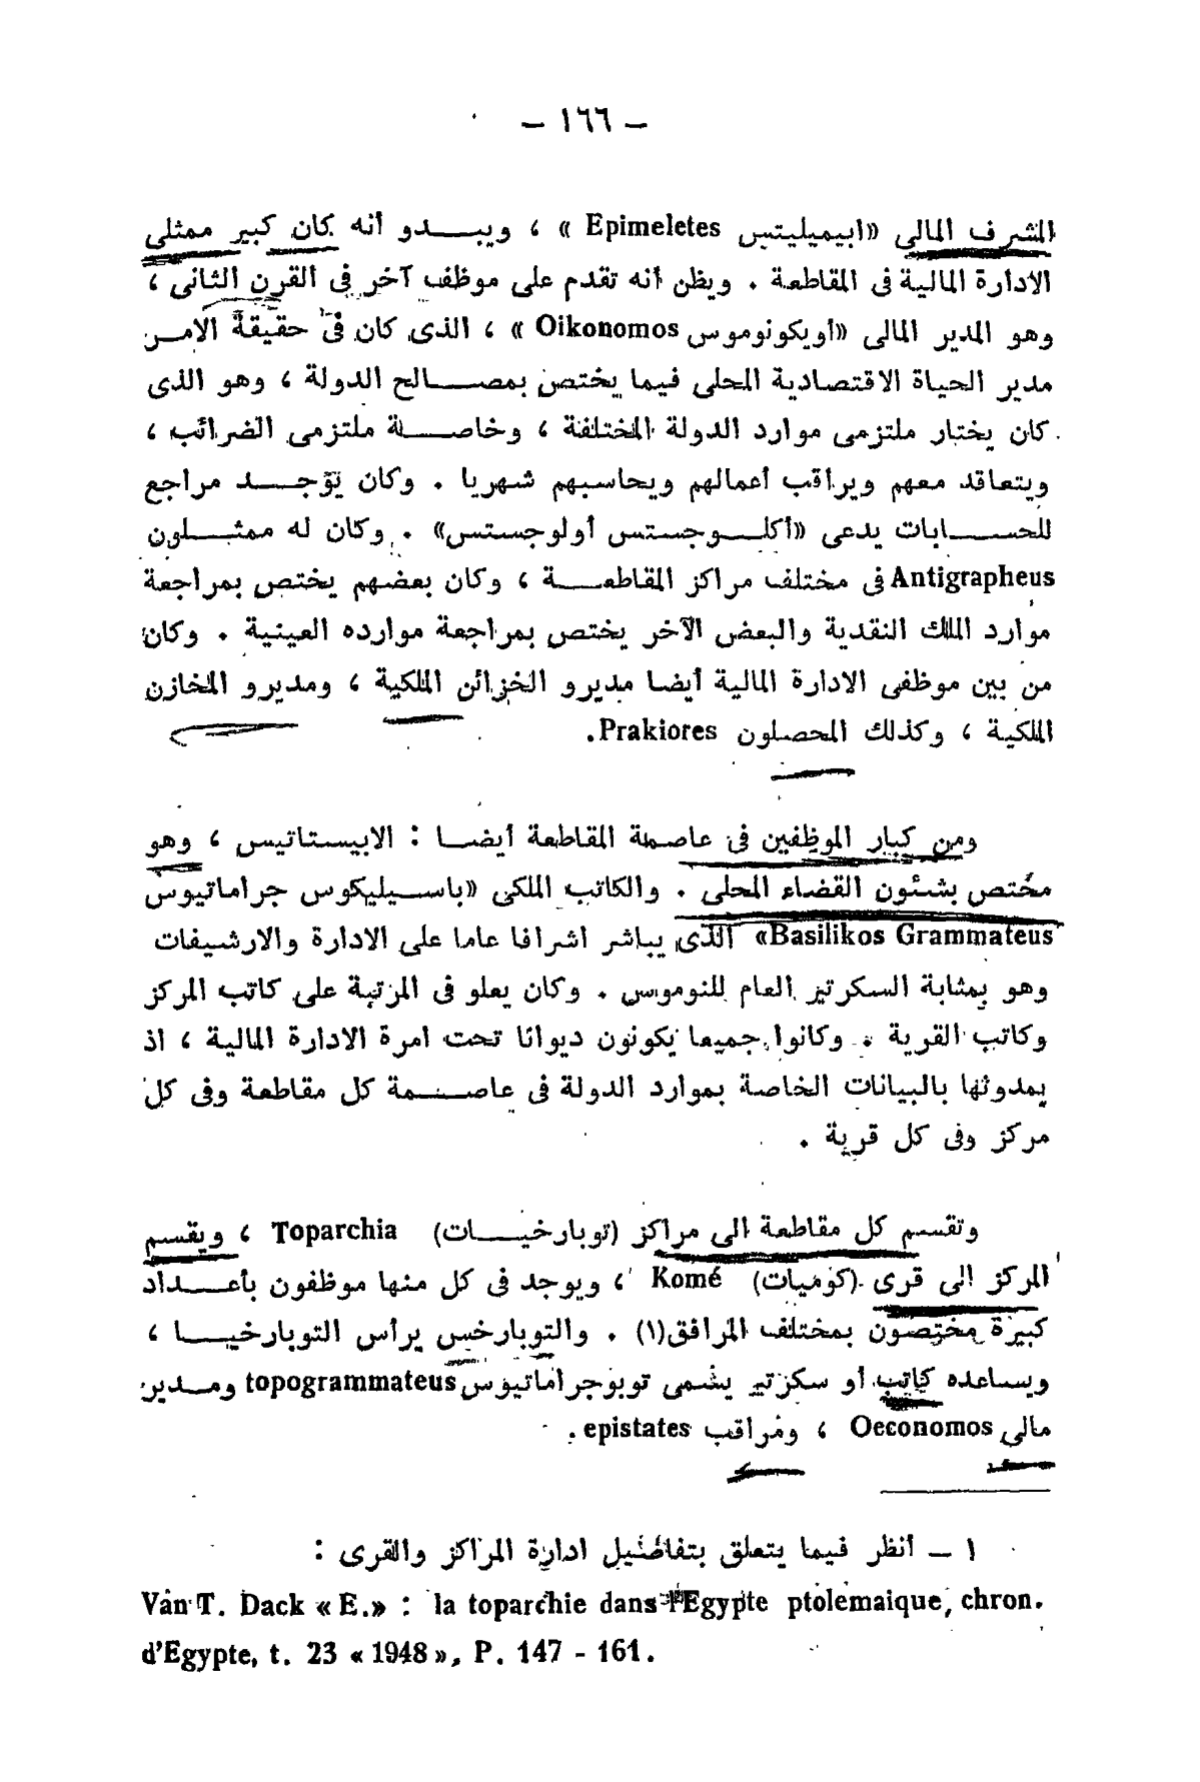 — ١٦٦ —
المشرف المالى «ابيميليتس Epimeletes » ، ويبـــدو أنه كان كبير ممثلى
الادارة المالية فى المقاطعة . ويظن أنه تقدم على موظف آخر فى القرن الثانى ،
وهو المدير المالى «أويكونوموس Oikonomos » ، الذى كان فى حقيقة الأمــر
مدير الحياة الاقتصادية المحلى فيما يختص بمصـــالح الدولة ، وهو الذى
كان يختار ملتزمى موارد الدولة المختلفة ، وخاصـــة ملتزمى الضرائب ،
ويتعاقد معهم ويراقب أعمالهم ويحاسبهم شهريا . وكان يوجـــد مراجع
للحســـابات يدعى «أكلـــوجستس أولوجستس» . وكان له ممثـــلون
Antigrapheus فى مختلف مراكز المقاطعـــة ، وكان بعضهم يختص بمراجعة
موارد الملك النقدية والبعض الآخر يختص بمراجعة موارده العينية . وكان
من بين موظفى الادارة المالية أيضا مديرو الخزائن الملكية ، ومديرو المخازن
الملكية ، وكذلك المحصلون Prakiores.
ومن كبار الموظفين فى عاصمة المقاطعة أيضـــا : الابيستاتيس ، وهو
مختص بشئون القضاء المحلى . والكاتب الملكى «باســـيليكوس جراماتيوس
Basilikos Grammateus» الذى يباشر اشرافا عاما على الادارة والارشيفات
وهو بمثابة السكرتير العام للنوموس . وكان يعلو فى المرتبة على كاتب المركز
وكاتب القرية . وكانوا جميعا يكونون ديوانا تحت امرة الادارة المالية ، اذ
يمدونها بالبيانات الخاصة بموارد الدولة فى عاصـــمة كل مقاطعة وفى كل
مركز وفى كل قرية .
وتقسم كل مقاطعة الى مراكز (توبارخيـــات) Toparchia ، ويقسم
المركز الى قرى (كوميات) Komé ، ويوجد فى كل منها موظفون بأعـــداد
كبيرة مختصون بمختلف المرافق(١) . والتوبارخس يرأس التوبارخيـــا ،
ويساعده كاتب أو سكرتير يسمى توبوجراماتيوس topogrammateus ومـــدير
مالى Oeconomos ، ومراقب epistates .
١ — أنظر فيما يتعلق بتفاصيل ادارة المراكز والقرى :
Van T. Dack « E.» : la toparchie dans l'Egypte ptolémaique, chron.
d'Egypte, t. 23 « 1948 », P. 147 - 161.